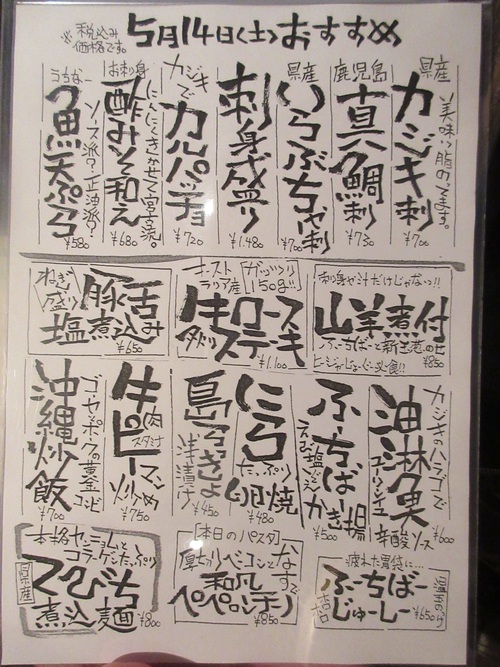 5月14日(土)おすすめ
※税込み
価格です。
県産
カジキ刺
美味い脂のってます。
¥700
鹿児島
真鯛刺
¥730
県産
いらぶちゃ刺
¥700
刺身盛り
¥1,480
カジキで
カルパッチョ
¥720
お刺身
酢みそ和え
にんにくきかせて宮古流。
¥680
うちなー
魚天ぷら
ソース派?正油派?
¥580
刺身や汁だけじゃない!!
山羊煮付
¥850
オーストラリア産
ガッツリ150g!!
牛ロース
ステーキ
¥1,100
ねぎ盛り
豚舌
塩煮込み
¥650
カジキのハラゴで
油淋魚
ユーリンユイ
辛酸ソース
¥600
ふーちばー
かき揚
¥500
にら
たっぷり
卵焼
¥480
島らっきょ
浅漬け
¥450
牛肉ピーマン炒め
スタミナ
¥750
ゴーヤポークの黄金コンビ
沖縄炒飯
¥700
疲れた胃袋に…
ふーちばー
じゅーしー
¥650
[本日のパスタ]
厚切りベーコンとなすで
和風
ペペロンチーノ
¥850
本格セーニョムとコラーゲンたっぷり
県産
てびち
煮込麺
¥800